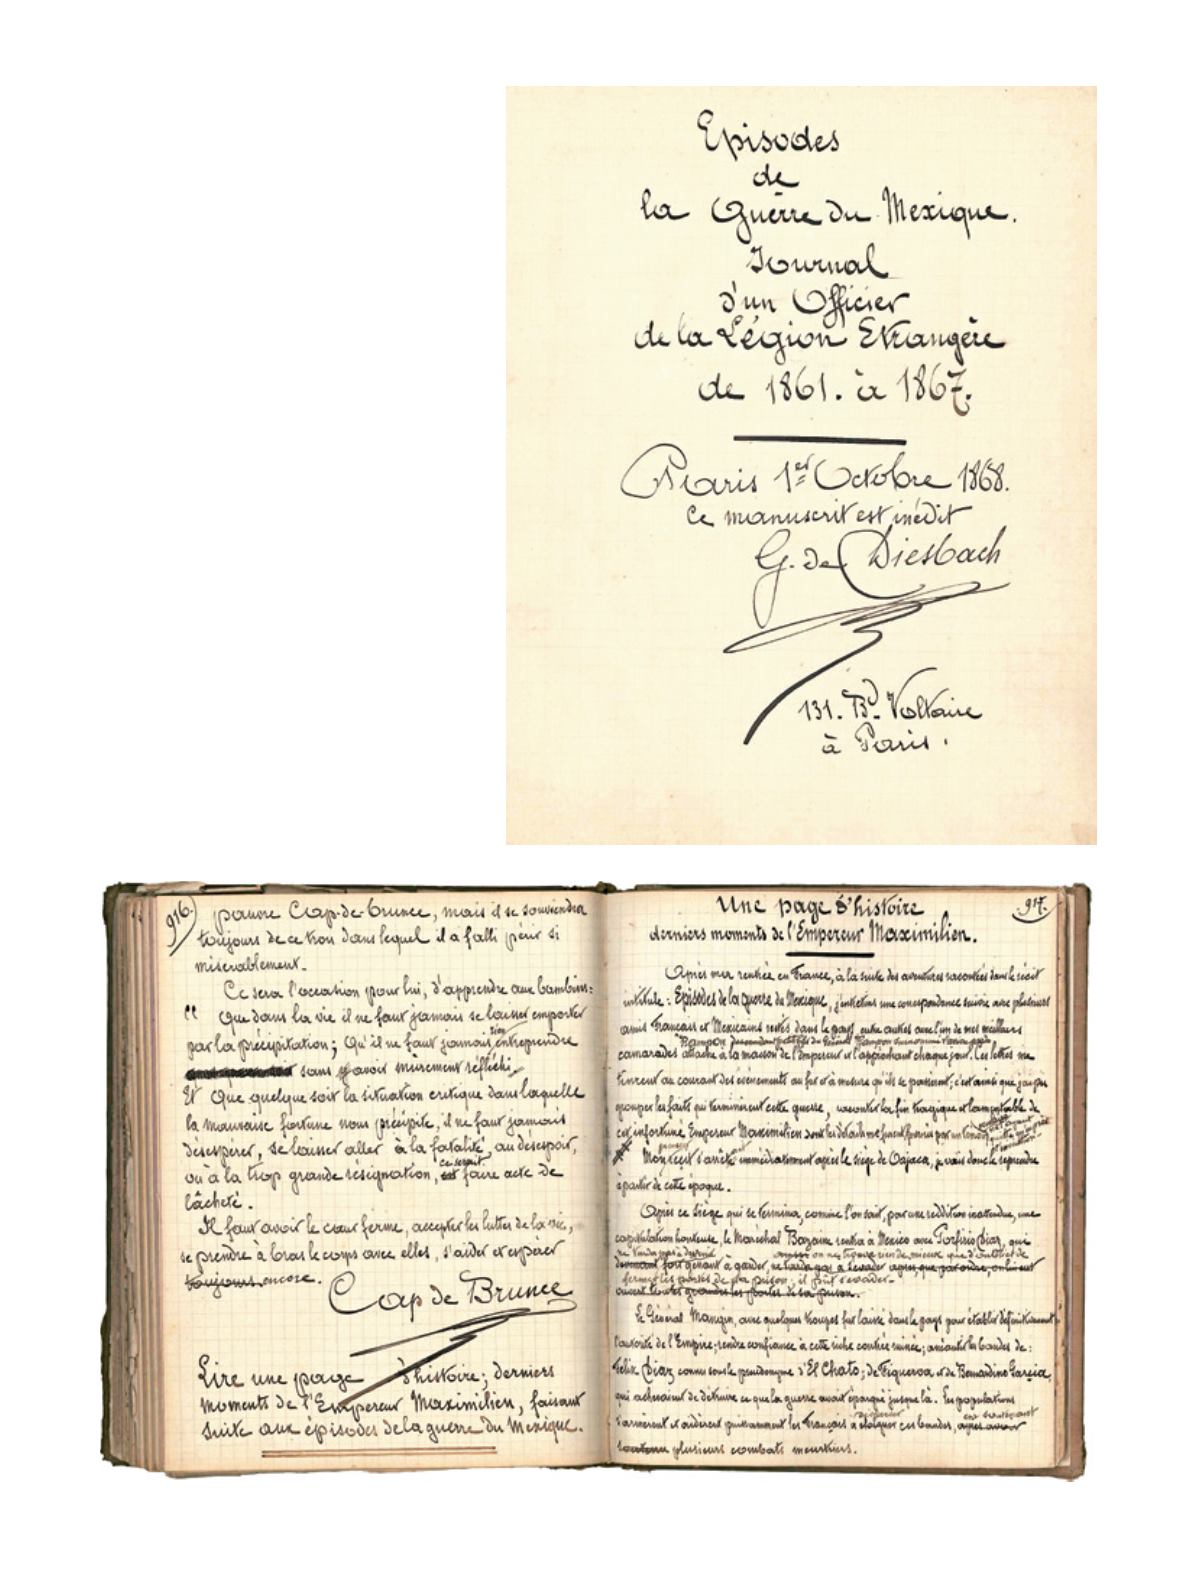 Episodes
de
la Guerre du Mexique.
Journal
d'un Officier
de la Légion Etrangère
de 1861. à 1867.
Paris 1er Octobre 1868.
Ce manuscrit est inédit
G. de Diesbach
131. Bd. Voltaire
à Paris.
916.
pauvre Cap-de-brunce, mais il se souviendra
toujours de ce trou dans lequel il a falli périr si
misérablement.
Ce sera l'occasion pour lui, d'apprendre aux bambins:
" Que dans la vie il ne faut jamais se laisser emporter
par la précipitation; Qu'il ne faut jamais rien entreprendre
sans y avoir mûrement réfléchi.
Et Que quelque soit la situation critique dans laquelle
la mauvaise fortune nous précipite, il ne faut jamais
désespérer, se laisser aller à la fatalité, au désespoir,
ou à la trop grande résignation, est ce serait faire acte de
lâcheté.
Il faut avoir le cœur ferme, accepter les luttes de la vie,
se prendre à bras le corps avec elles, s'aider et espérer
toujours encore.
Cap de Brunce
Lire une page d'histoire; derniers
moments de l'Empereur Maximilien, faisant
suite aux épisodes de la guerre du Mexique.
917.
Une page d'histoire
derniers moments de l'Empereur Maximilien.
Après ma rentrée en France, à la suite des aventures racontées dans le récit
intitulé: Episodes de la guerre du Mexique, j'entretins une correspondance suivie avec plusieurs
amis Français et Mexicains restés dans le pays, entre autres avec l'un de mes meilleurs
Rampon descendant petit fils du Général Rampon
camarades attaché à la maison de l'Empereur et l'approchant chaque jour. Ces lettres me
tinrent au courant des événements au fur et à mesure qu'ils se passaient; c'est ainsi que j'ai pu
grouper les faits qui terminèrent cette guerre, raconter la fin tragique et lamentable de
cet infortuné Empereur Maximilien dont les détails me furent fournis par un témoin
Mon récit s'arrête immédiatement après le siège de Oajaca, je vais donc le reprendre
à partir de cette époque.
Après ce Siège qui se termina, comme l'on sait, par une reddition inattendue, une
capitulation honteuse, le Maréchal Bazaine rentra à Mexico avec Porfirio Diaz, qui
on ne trouva rien de mieux que d'oublier de
devenant fort gênant à garder, ne tarda pas à s'évader après que par ordre, on lui eut
fermer les portes de sa prison; il put s'évader.
ouvert toutes grandes les portes de sa prison.
Le Général Mangin, avec quelques troupes fut laissé dans le pays pour établir définitivement
l'autorité de l'Empire; rendre confiance à cette riche contrée ruinée; anéantir les bandes de:
Félix Diaz connu sous le pseudonyme d'El Chato; de Figueroa et de Bernardino Garcia,
qui achevaient de détruire ce que la guerre avait épargné jusque là. Les populations
s'armèrent et aidèrent puissamment les Français à éloigner ces bandes, après avoir
soutenu plusieurs combats meurtriers.